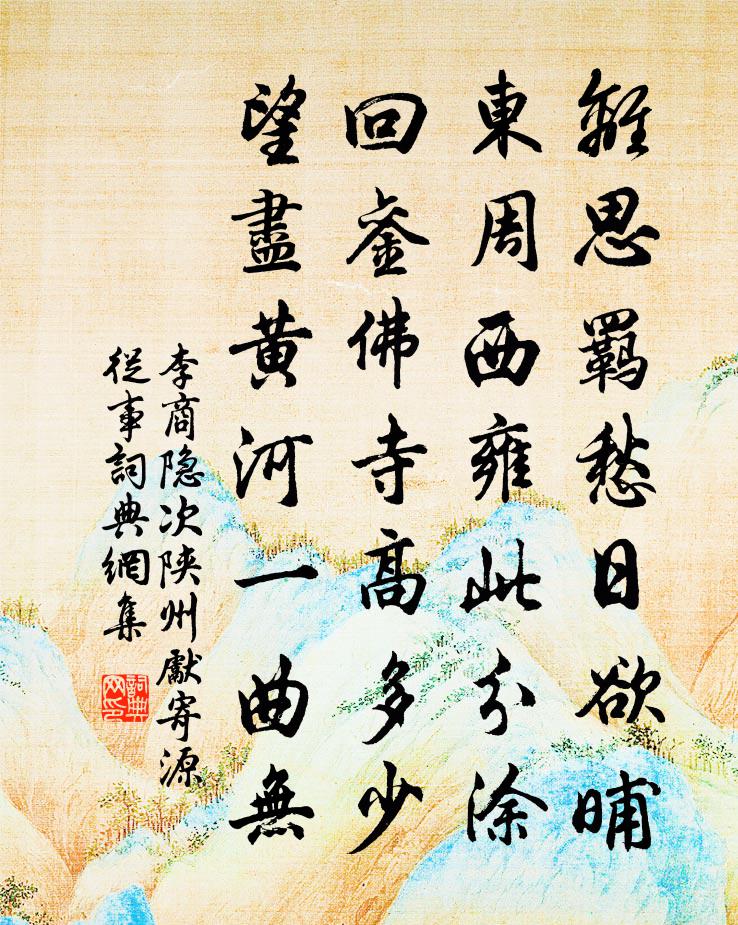 離思羈愁日欲晡
東周西雍此分涂
回銮佛寺高多少
望盡黄河一曲無
李商隐次陕州獻寄源
從事詞典網集
詞典网印